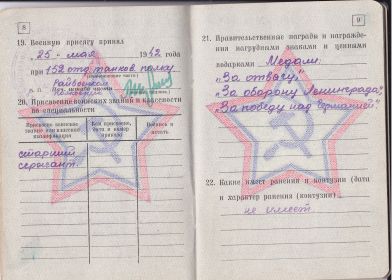 8
19. Военную присягу принял
"25" мая 1942 года
при 152 отд. танков. полку
п. п.
20. Присвоение воинских званий и классности
по специальности
Присвоено воинское
звание или классная
квалификация
Кем присвоено,
дата и номер
приказа
Подпись и
печать
старший
сержант.
9
21. Правительственные награды и награжде-
ния нагрудными знаками и ценными
подарками Медали:
"За отвагу",
"За оборону Ленинграда",
"За победу над Германией".
22. Какие имеет ранения и контузии (дата
и характер ранения (контузии)
не имеет.